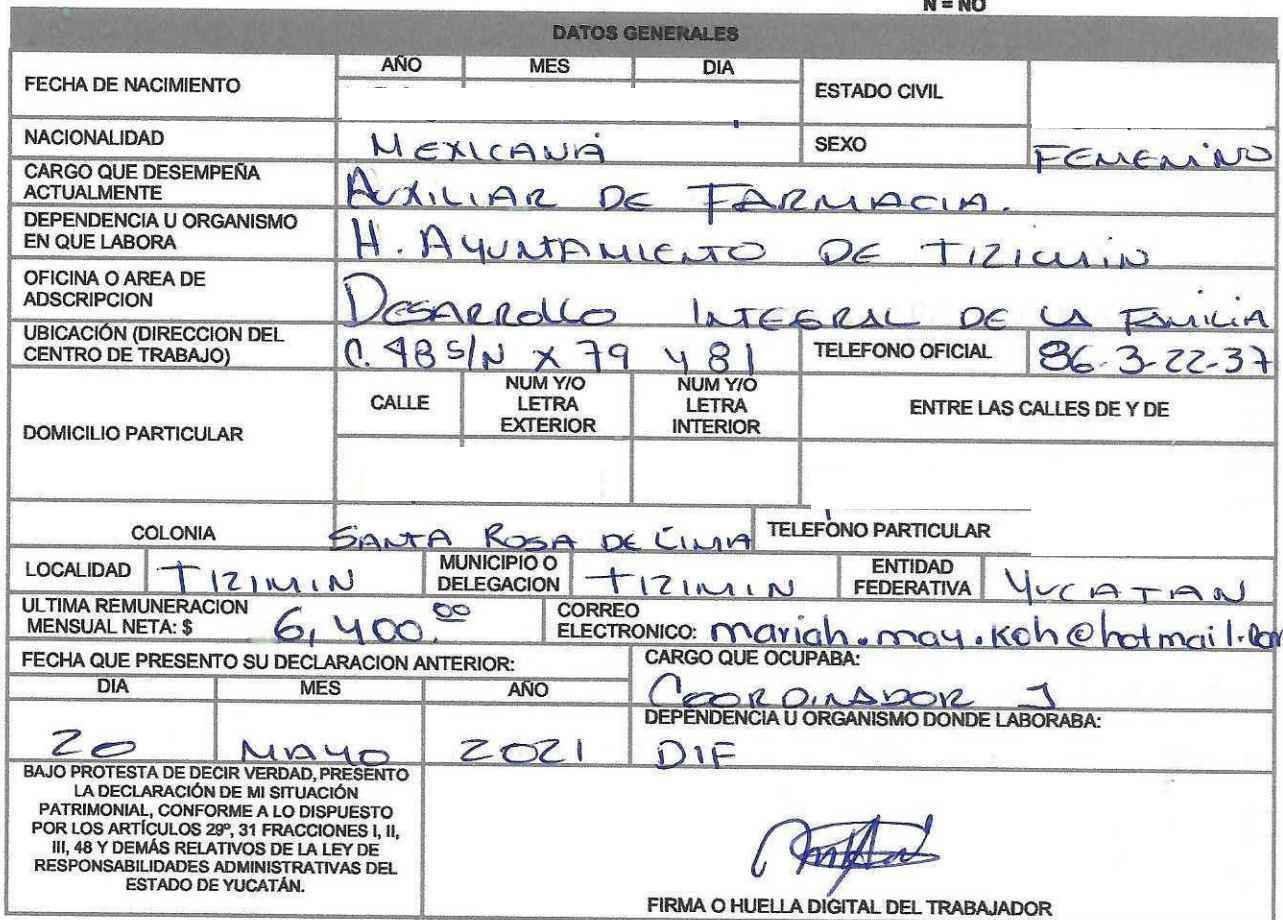 N = NO
DATOS GENERALES
FECHA DE NACIMIENTO
AÑO MES DIA
ESTADO CIVIL
NACIONALIDAD MEXICANA SEXO FEMENINO
CARGO QUE DESEMPEÑA
ACTUALMENTE
AUXILIAR DE FARMACIA.
DEPENDENCIA U ORGANISMO
EN QUE LABORA
H. AYUNTAMIENTO DE TIZIMIN
OFICINA O AREA DE
ADSCRIPCION
DESARROLLO INTEGRAL DE LA FAMILIA
UBICACIÓN (DIRECCION DEL
CENTRO DE TRABAJO)
C. 48 S/N X 79 Y 81
TELEFONO OFICIAL 86-3-22-37
DOMICILIO PARTICULAR
CALLE
NUM Y/O
LETRA
EXTERIOR
NUM Y/O
LETRA
INTERIOR
ENTRE LAS CALLES DE Y DE
COLONIA SANTA ROSA DE LIMA TELEFONO PARTICULAR
LOCALIDAD TIZIMIN
MUNICIPIO O
DELEGACION
TIZIMIN
ENTIDAD
FEDERATIVA
YUCATAN
ULTIMA REMUNERACION
MENSUAL NETA: $ 6,400.00
CORREO
ELECTRONICO: mariah.may.koh@hotmail.com
FECHA QUE PRESENTO SU DECLARACION ANTERIOR:
DIA MES AÑO
20 MAYO 2021
CARGO QUE OCUPABA:
COORDINADOR J
DEPENDENCIA U ORGANISMO DONDE LABORABA:
DIF
BAJO PROTESTA DE DECIR VERDAD, PRESENTO
LA DECLARACIÓN DE MI SITUACIÓN
PATRIMONIAL, CONFORME A LO DISPUESTO
POR LOS ARTÍCULOS 29º, 31 FRACCIONES I, II,
III, 48 Y DEMÁS RELATIVOS DE LA LEY DE
RESPONSABILIDADES ADMINISTRATIVAS DEL
ESTADO DE YUCATÁN.
FIRMA O HUELLA DIGITAL DEL TRABAJADOR